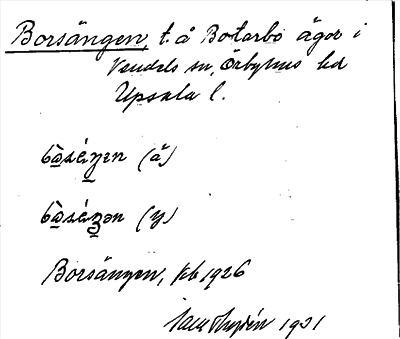 Borsängen, t. å Botarbo ägor i
Vendels sn, Örbyhus hd
Upsala l.
bòsäŋɪn (ä)
bòsäŋən (y)
Borsängen, kb 1926
1931